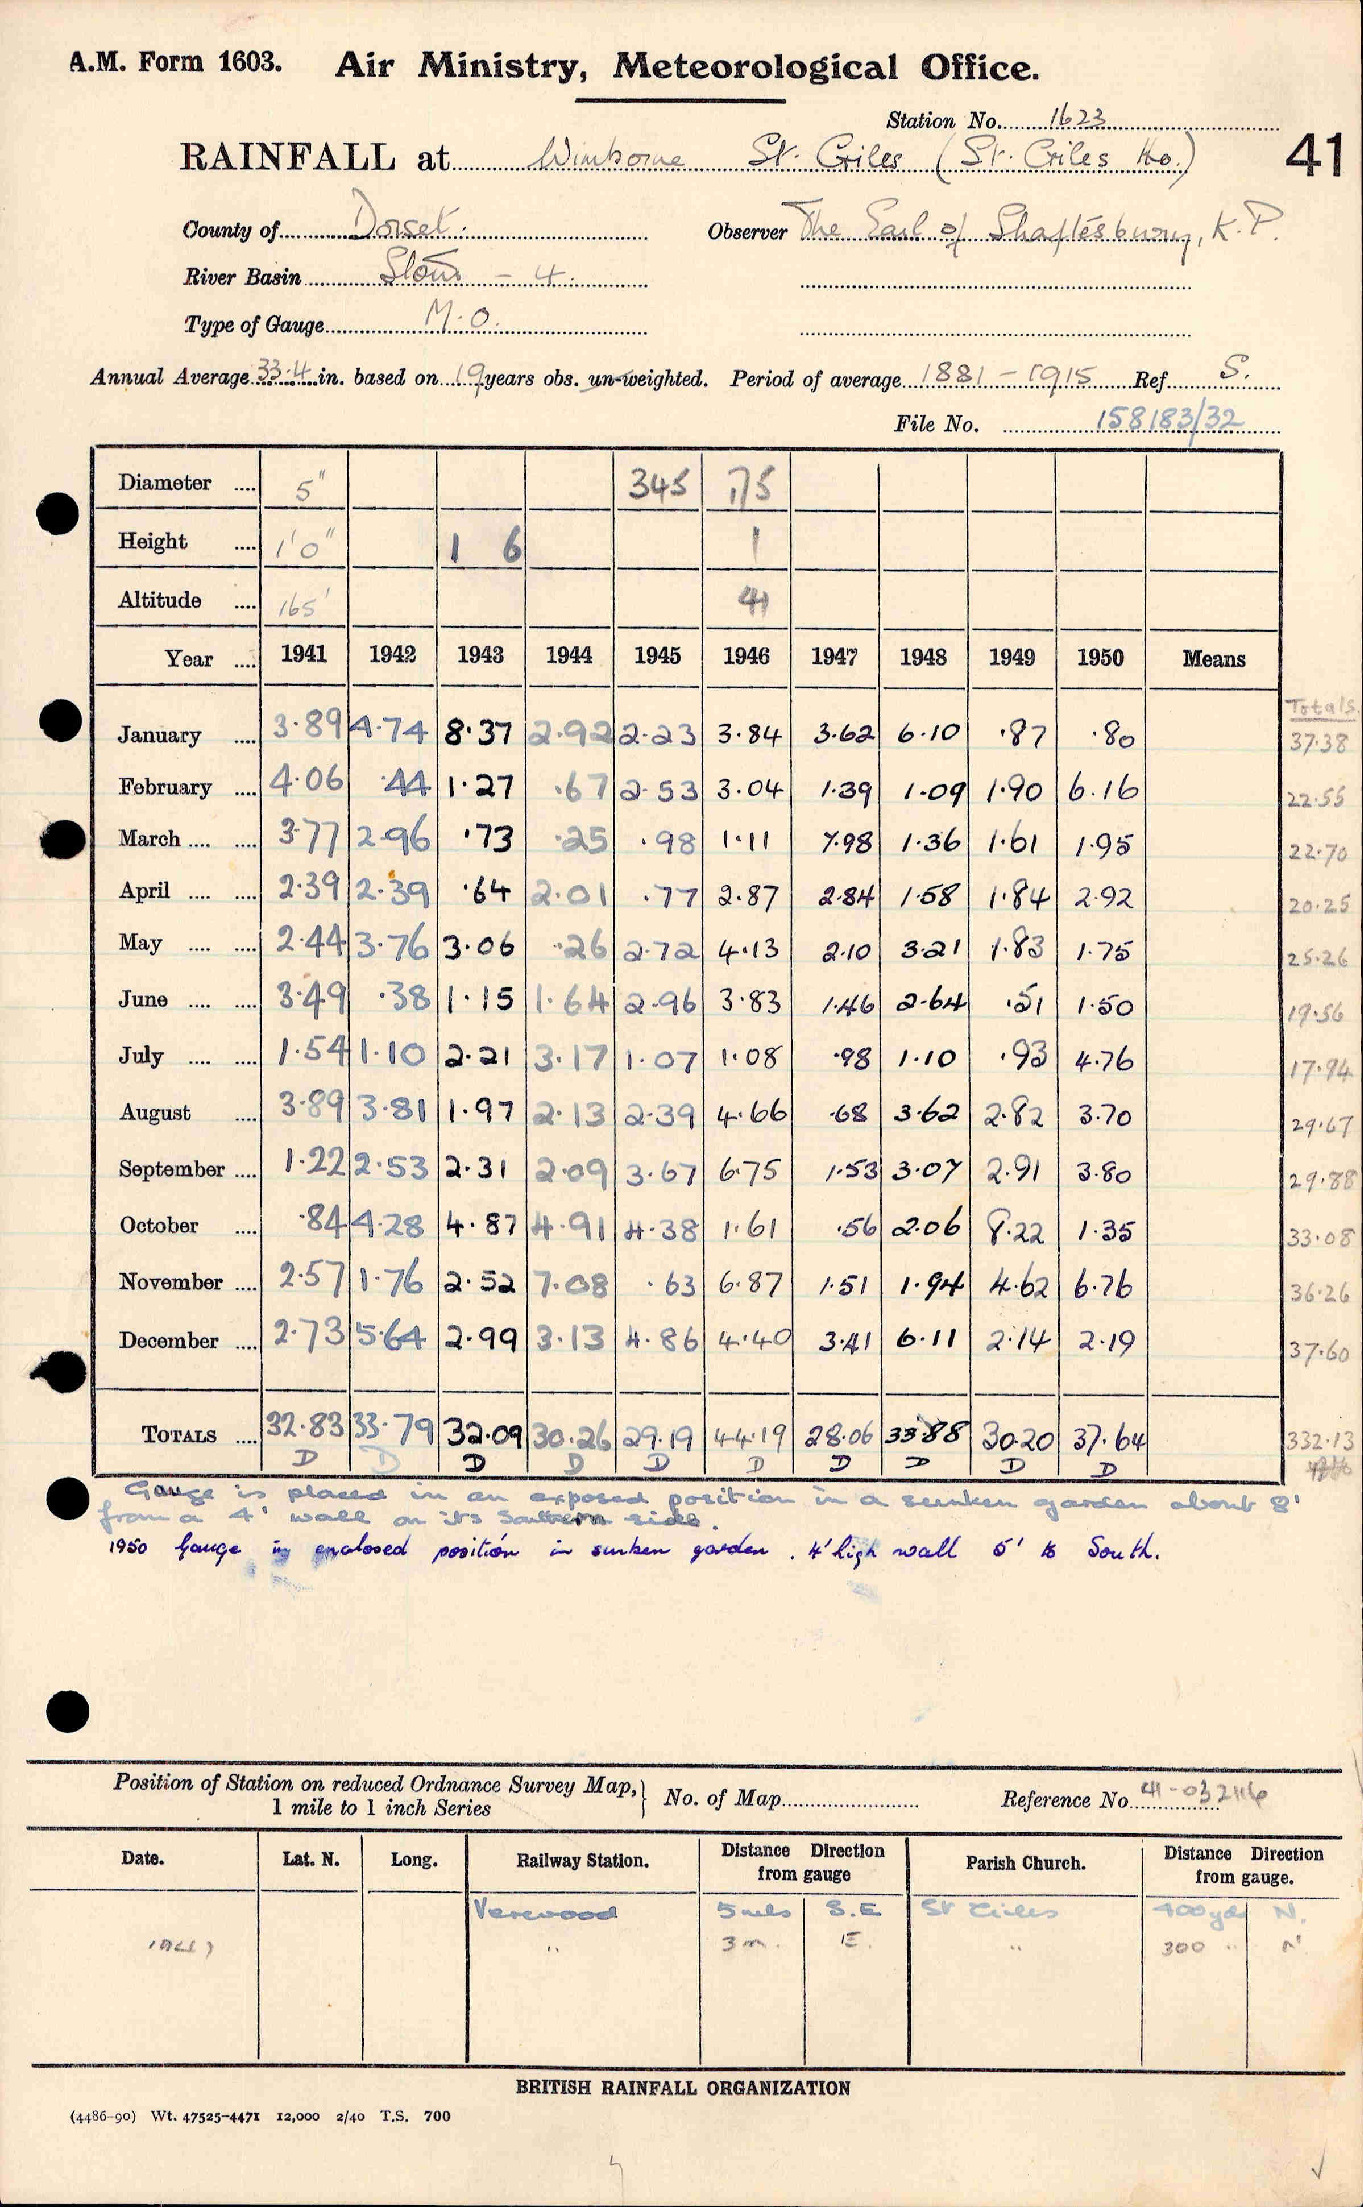 A.M. Form 1603. Air Ministry, Meteorological Office.
Station No. 1623
RAINFALL at Wimborne St. Giles (St. Giles Ho.) 41
County of Dorset. Observer The Earl of Shaftesbury, K.P.
River Basin Stour - 4.
Type of Gauge M.O.
Annual Average 33.4 in. based on 19 years obs. un-weighted. Period of average 1881 - 1915 Ref S.
File No. 158183/32
Diameter .... 5" 345 175
Height .... 1'0" 1 6 1
Altitude .... 165' 41
Year .... 1941 1942 1943 1944 1945 1946 1947 1948 1949 1950 Means
Totals
January .... 3.89 4.74 8.37 2.92 2.23 3.84 3.62 6.10 .87 .80 37.38
February .... 4.06 .44 1.27 .67 2.53 3.04 1.39 1.09 1.90 6.16 22.55
March .... .... 3.77 2.96 .73 .25 .98 1.11 7.98 1.36 1.61 1.95 22.70
April .... .... 2.39 2.39 .64 2.01 .77 2.87 2.84 1.58 1.84 2.92 20.25
May .... .... 2.44 3.76 3.06 .26 2.72 4.13 2.10 3.21 1.83 1.75 25.26
June .... .... 3.49 .38 1.15 1.64 2.96 3.83 1.46 2.64 .51 1.50 19.56
July .... .... 1.54 1.10 2.21 3.17 1.07 1.08 .98 1.10 .93 4.76 17.94
August .... 3.89 3.81 1.97 2.13 2.39 4.66 .68 3.62 2.82 3.70 29.67
September .... 1.22 2.53 2.31 2.09 3.67 6.75 1.53 3.07 2.91 3.80 29.88
October .... .84 4.28 4.87 4.91 4.38 1.61 .56 2.06 8.22 1.35 33.08
November .... 2.57 1.76 2.52 7.08 .63 6.87 1.51 1.94 4.62 6.76 36.26
December .... 2.73 5.64 2.99 3.13 4.86 4.40 3.41 6.11 2.14 2.19 37.60
TOTALS .... 32.83 33.79 32.09 30.26 29.19 44.19 28.06 33.88 30.20 37.64 332.13
D D D D D D D D D D
Gauge is placed in an exposed position in a sunken garden about 8'
from a 4' wall on its Southern side.
1950 Gauge in enclosed position in sunken garden. 4' high wall 5' to South.
Position of Station on reduced Ordnance Survey Map, 1 mile to 1 inch Series } No. of Map Reference No. 41-032116
Date. Lat. N. Long. Railway Station. Distance Direction from gauge Parish Church. Distance Direction from gauge.
Verwood 5 mls S.E St Giles 400 yds N.
" 3 m. E. " 300 " N
BRITISH RAINFALL ORGANIZATION
(4486-90) Wt. 47525-4471 12,000 2/40 T.S. 700